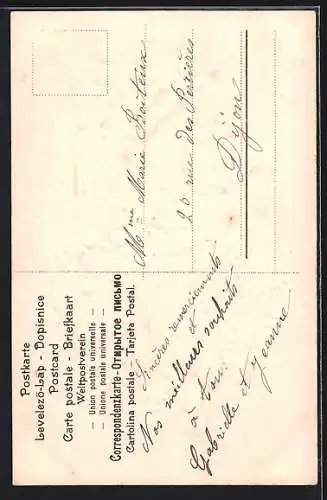 Postkarte
Levelező-Lap - Dopisnice
Postcard
Carte postale - Briefkaart
Weltpostverein
— Union postale universelle —
— Unione postale universale —
Correspondenzkarte-Открытое письмо
Cartolina postale - Tarjeta Postal.
Sincères remerciements
et
Nos meilleurs souhaits
à tous
Gabrielle et Jeanne
Mme Marie
20 rue des Perrières
Dijon